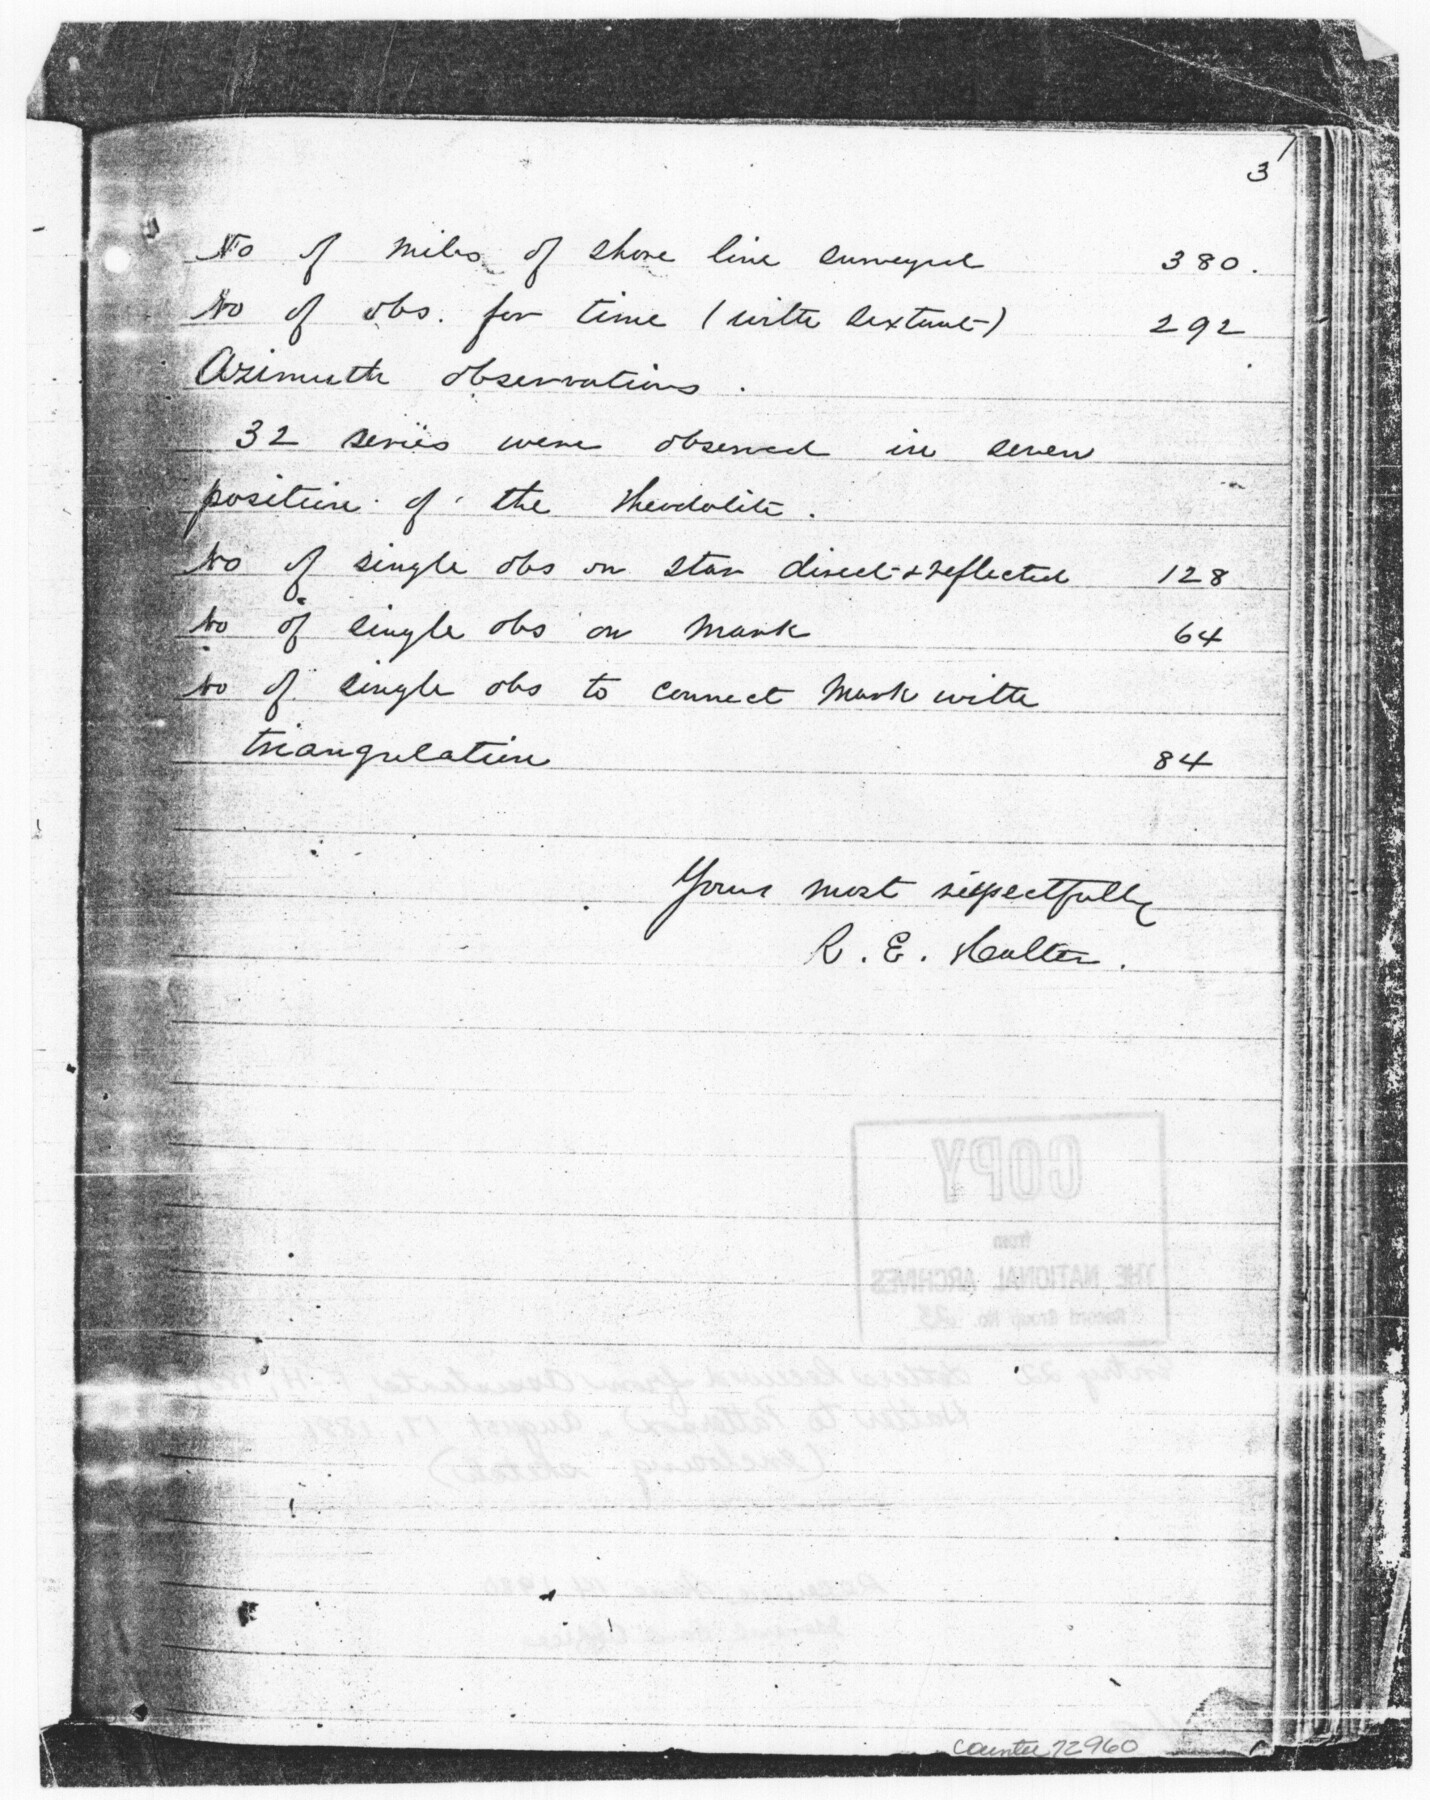 3
No of miles of shore line surveyed 380.
No of obs. for time (with sextant) 292
Azimuth observations.
32 series were observed in seven
position of the theodolite.
No of single obs on star direct & reflected 128
No of single obs on Mark 64
No of single obs to connect Mark with
triangulation 84
Yours most respectfully
R. E. Halter.
COPY
from
THE NATIONAL ARCHIVES
Record Group No. 23
Entry 22 Letters Received from Assistants,
Halter to Patterson, August 17, 1881
(enclosing sketch)
counter 72960